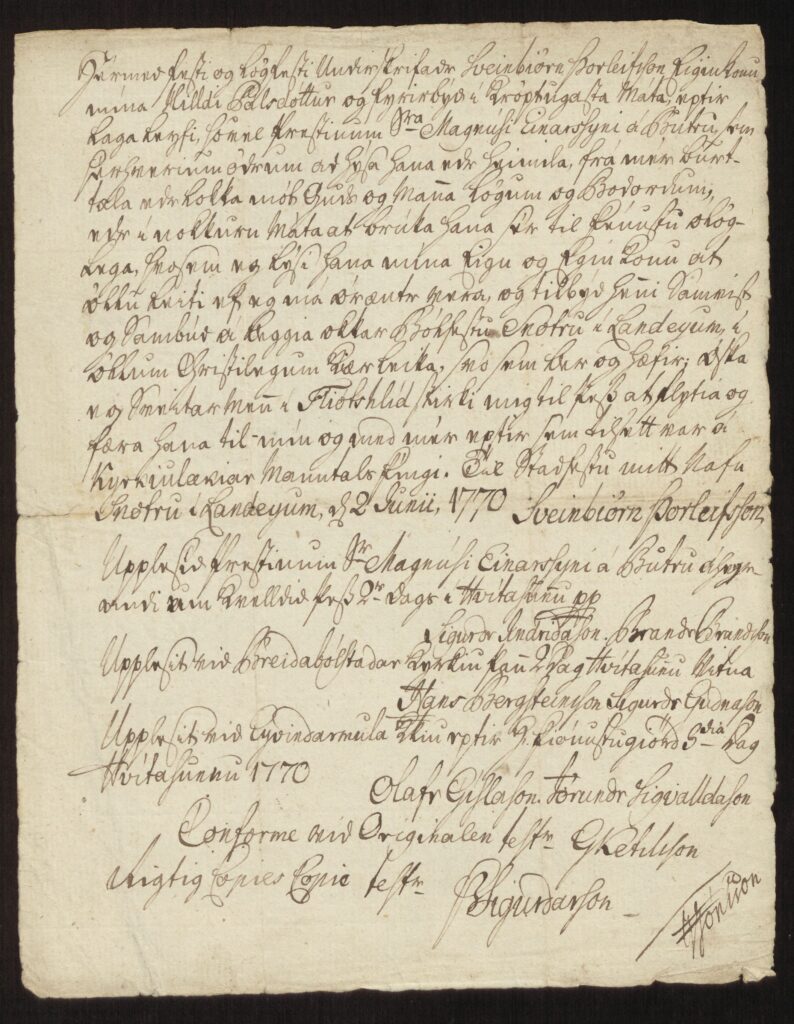 Hérmed festi og lögfesti Undirskrifadr Sveinbiörn Þorleifsson Eiginkonu
mína Hilldi Pálsdottur og fyrirbyd í kröptugasta Máta, eptir
Laga leyfi, sovel Prestinum Sra Magnúsi Einarssyni á Butru, sem
serhverium ödrum ad hýsa hana edr heimila, frá mér burt-
tæla edr locka mót Guds og Manna lögum og Bodordum,
edr i nockurn Máta at brúka hana sér til þénustu ólög-
lega, sosem eg lýsi hana mína Eign og Egin konu at
öllu leiti ef eg má óræntr vera, og tilbyd henni Samvist
og Sambúd á beggia okkar Bólfestu Snotru i Landeyum, i
öllum Christilegum Kærleika, svo sem ber og hæfir; oska
eg Sveitar Menn i Fliotshlíd styrki mig til þess at flytia og
færa hana til mín og med mér eptir sem tilsett var á
Kyrkiulækiar Manntals þingi. Til Stadfestu mitt Nafn
Snotru i Landeyum, d 2 Junii, 1770 Sveinbiörn Þorleifsson
Upplesid Prestinum Sr Magnúsi Einarssyni á Butru áheyr-
andi um kvelldid þess 2rs dags i Hvítasunnu pp
Sigurdr Indridason. Brandr Brandsson
Upplesit vid Breidabólstadar Kyrkiu þann 2 dag Hvítasunnu Vitna
Hans Bergsteinsson Sigurdr Gudnason
Upplesit vid Eyvindarmula Kiu eptir H. þiónustugiörd 3dia Dag
Hvítasunnu 1770
Olafr Gislason. Jörundr Sigvalldason
Conforme vid Originalen testr GKetilsson
Rigtig Copies Copie testr
Sigurdarson